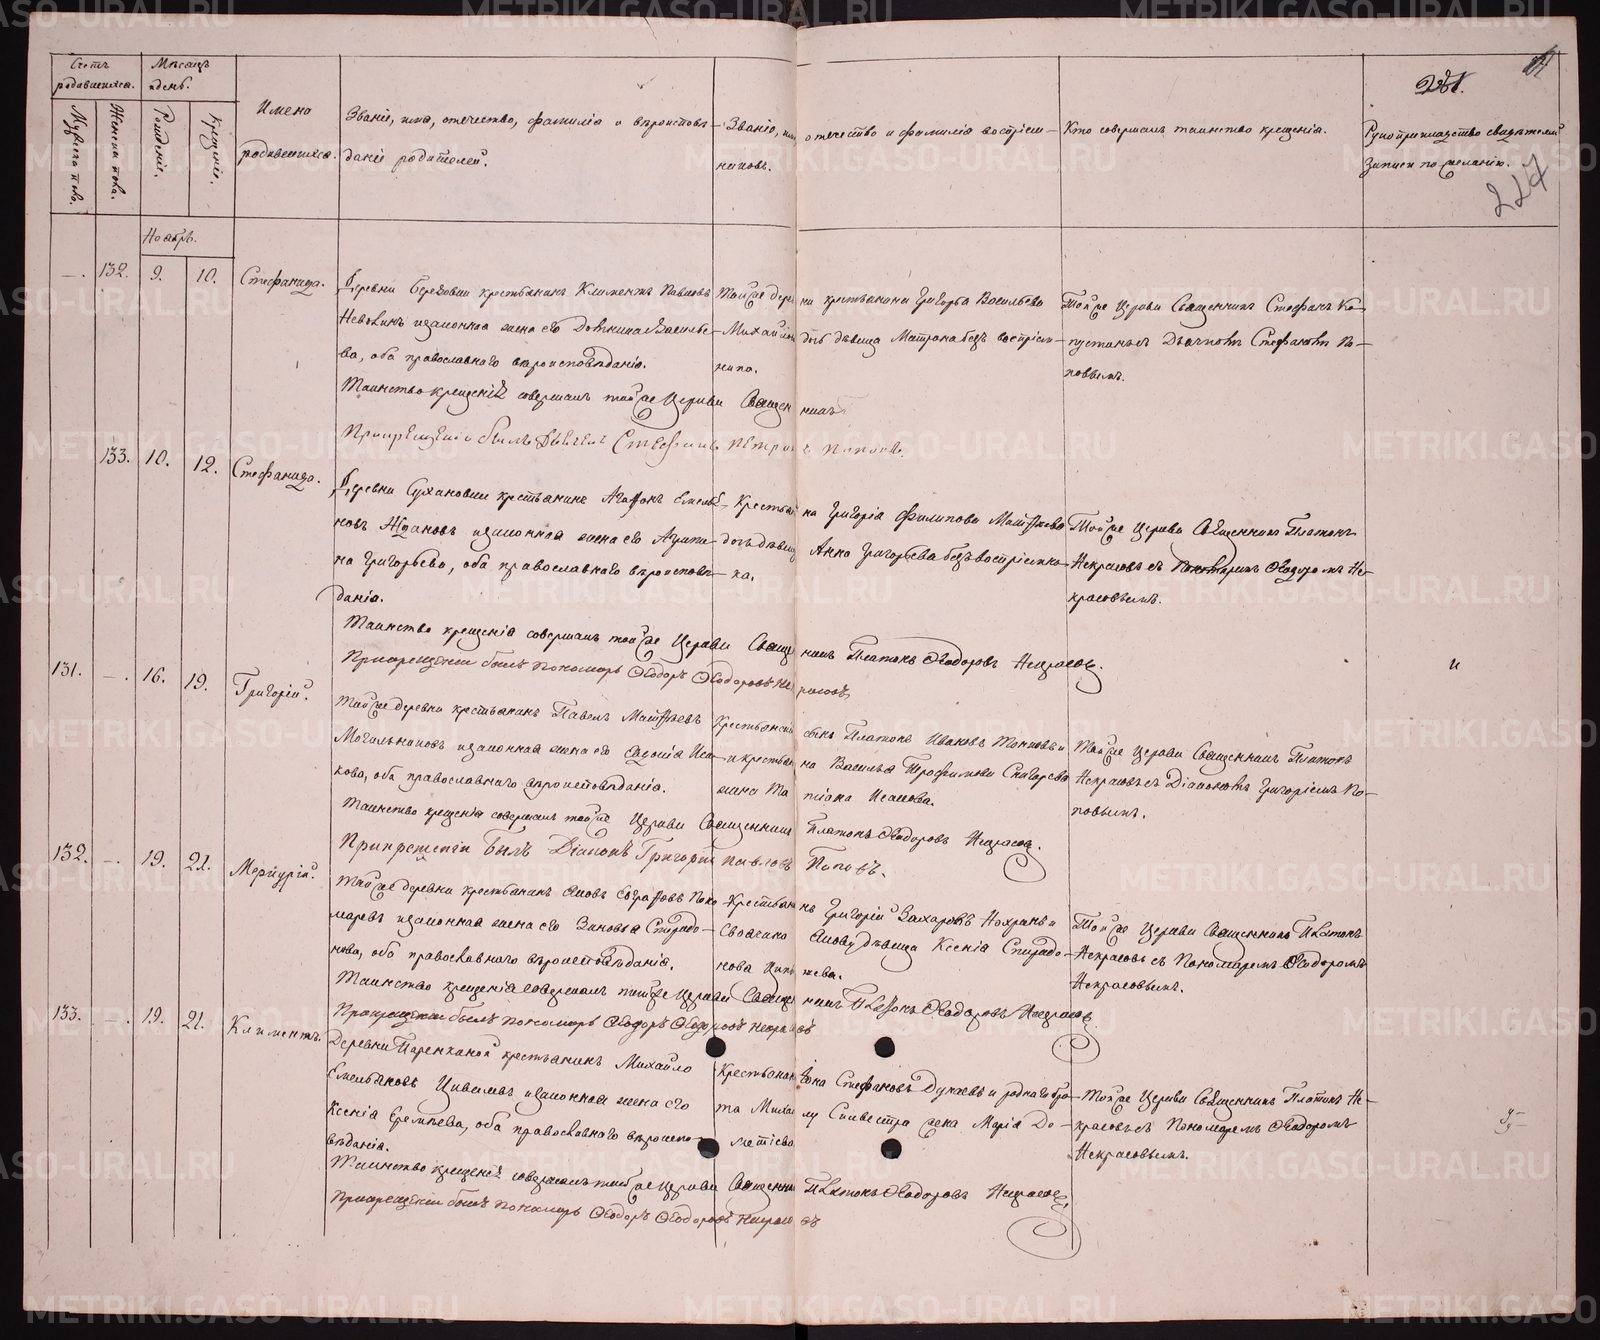 Счетъ родившихся.
Мѣсяцъ и день.
Имена родившихся.
Званіе, имя, отечество, фамилія и вѣроисповѣданіе родителей.
Званіе, имя, отечество и фамилія воспріемниковъ.
Кто совершалъ таинство крещенія.
Рукоприкладство свидѣтелей записи по желанію.
Мужеска пола.
Женска пола.
Рожденіе.
Крещеніе.
227
Ноябрь.
132. 9. 10. Стефанида.
Деревни Березовки крестьянинъ Климентъ Павловъ
законная жена его Домника Василье-
ва, оба православнаго вѣроисповѣданія.
Той же дерев ни крестьянина Григорья Васильева
Михайлов дочь дѣвица Матрона безъ воспріем-
ника.
Той же Церкви Священникъ Стефанъ Ка-
пустинъ съ Дьячкомъ Стефаномъ По-
повымъ.
Таинство крещенія совершалъ той же Церкви Священ никъ
При крещеніи былъ Дьячекъ Стефанъ Петро въ Поповъ.
133. 10. 12. Стефанида.
Деревни Сухановки крестьянинъ Агафонъ Емелья-
новъ Ждановъ и законная жена его Агрипи-
на Григорьева, оба православнаго вѣроисповѣ-
данія.
Крестьяни на Григорія Филипова
дочь дѣвица Анна Григорьева безъ воспріемни-
ка.
Той же Церкви Священникъ Платонъ
Некрасовъ съ Пономаремъ Ѳеодоромъ Не-
красовымъ.
Таинство крещенія совершалъ той же Церкви Свяще нникъ Платонъ Ѳеодоровъ Некрасовъ.
При крещеніи былъ пономарь Ѳеодоръ Ѳеодоровъ Не красовъ
131. 16. 19. Григорій.
Той же деревни крестьянинъ Павелъ Матѳѣевъ
Могильниковъ и законная жена его Евдокія Иса-
кова, оба православнаго вѣроисповѣданія.
Крестьянскій сынъ Платонъ Ивановъ
и крестьяни на Василья
жена Та тіана Исакова.
Той же Церкви Священникъ Платонъ
Некрасовъ съ Діакономъ Григоріемъ По-
повымъ.
Таинство крещенія совершалъ той же Церкви Священникъ Платонъ Ѳеодоровъ Некрасовъ.
При крещеніи былъ Діаконъ Григорій Павловъ Поповъ.
132. 19. 21. Меркурій.
Той же деревни крестьянинъ Яковъ Евграфовъ Поно-
маревъ и законная жена его Зиновья Спиридо-
нова, оба православнаго вѣроисповѣданія.
Крестьяни нъ Григорій Захаровъ
дѣвица Ксенія Спиридо-
Той же Церкви Священникъ Платонъ
Некрасовъ съ Пономаремъ Ѳеодоромъ
Некрасовымъ.
Таинство крещенія совершалъ той же Церкви Священ никъ Платонъ Ѳеодоровъ Некрасовъ
При крещеніи былъ пономарь Ѳеодоръ Ѳеодоровъ Некрас овъ
133. 19. 21. Климентъ.
Деревни крестьянинъ Михайло
Емельяновъ и законная жена его
Ксенія Еремѣева, оба православнаго вѣроиспо-
вѣданія.
Крестьянинъ Стефановъ и роднаго бра-
та Миха йлу Сильвестра жена Марія Де-
ментіева.
Той же Церкви Священникъ Платонъ Не-
красовъ съ Пономаремъ Ѳеодоромъ
Некрасовымъ.
Таинство крещенія совершалъ той же Церкви Священни къ Платонъ Ѳеодоровъ Некрасовъ.
При крещеніи былъ пономарь Ѳеодоръ Ѳеодоровъ Некрас овъ
METRIKI.GASO-URAL.RU